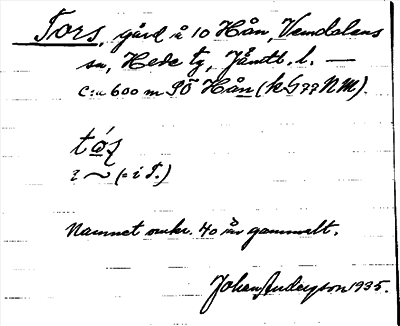 Tors, gård i 10 Hån, Vemdalens
sn, Hede tg, Jämtl. l. —
c:a 600 m SÖ Hån (k 577 NM).
tó̱ʂ
i ~ (= i T.)
Namnet omkr. 40 år gammalt.
Johan Anderzson 1935.